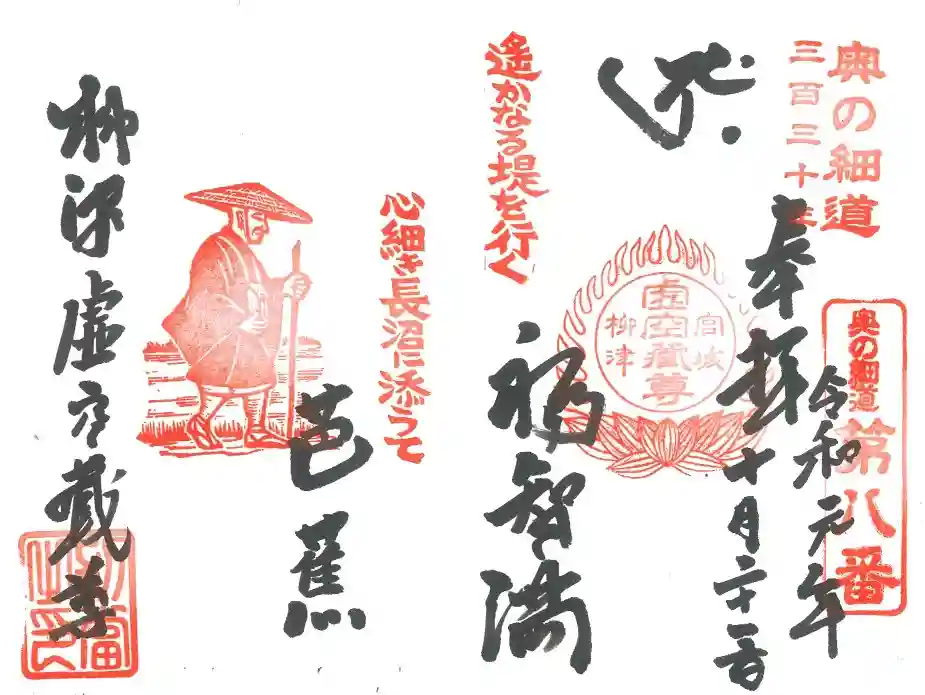 奥の細道
三百三十年
奥の細道
第八番
令和元年
奉拝
十月二十一日
宮城
虚空藏尊
柳津
福智満
遥かなる堤を行く
心細き長沼に添うて
芭蕉
柳津虚空蔵尊